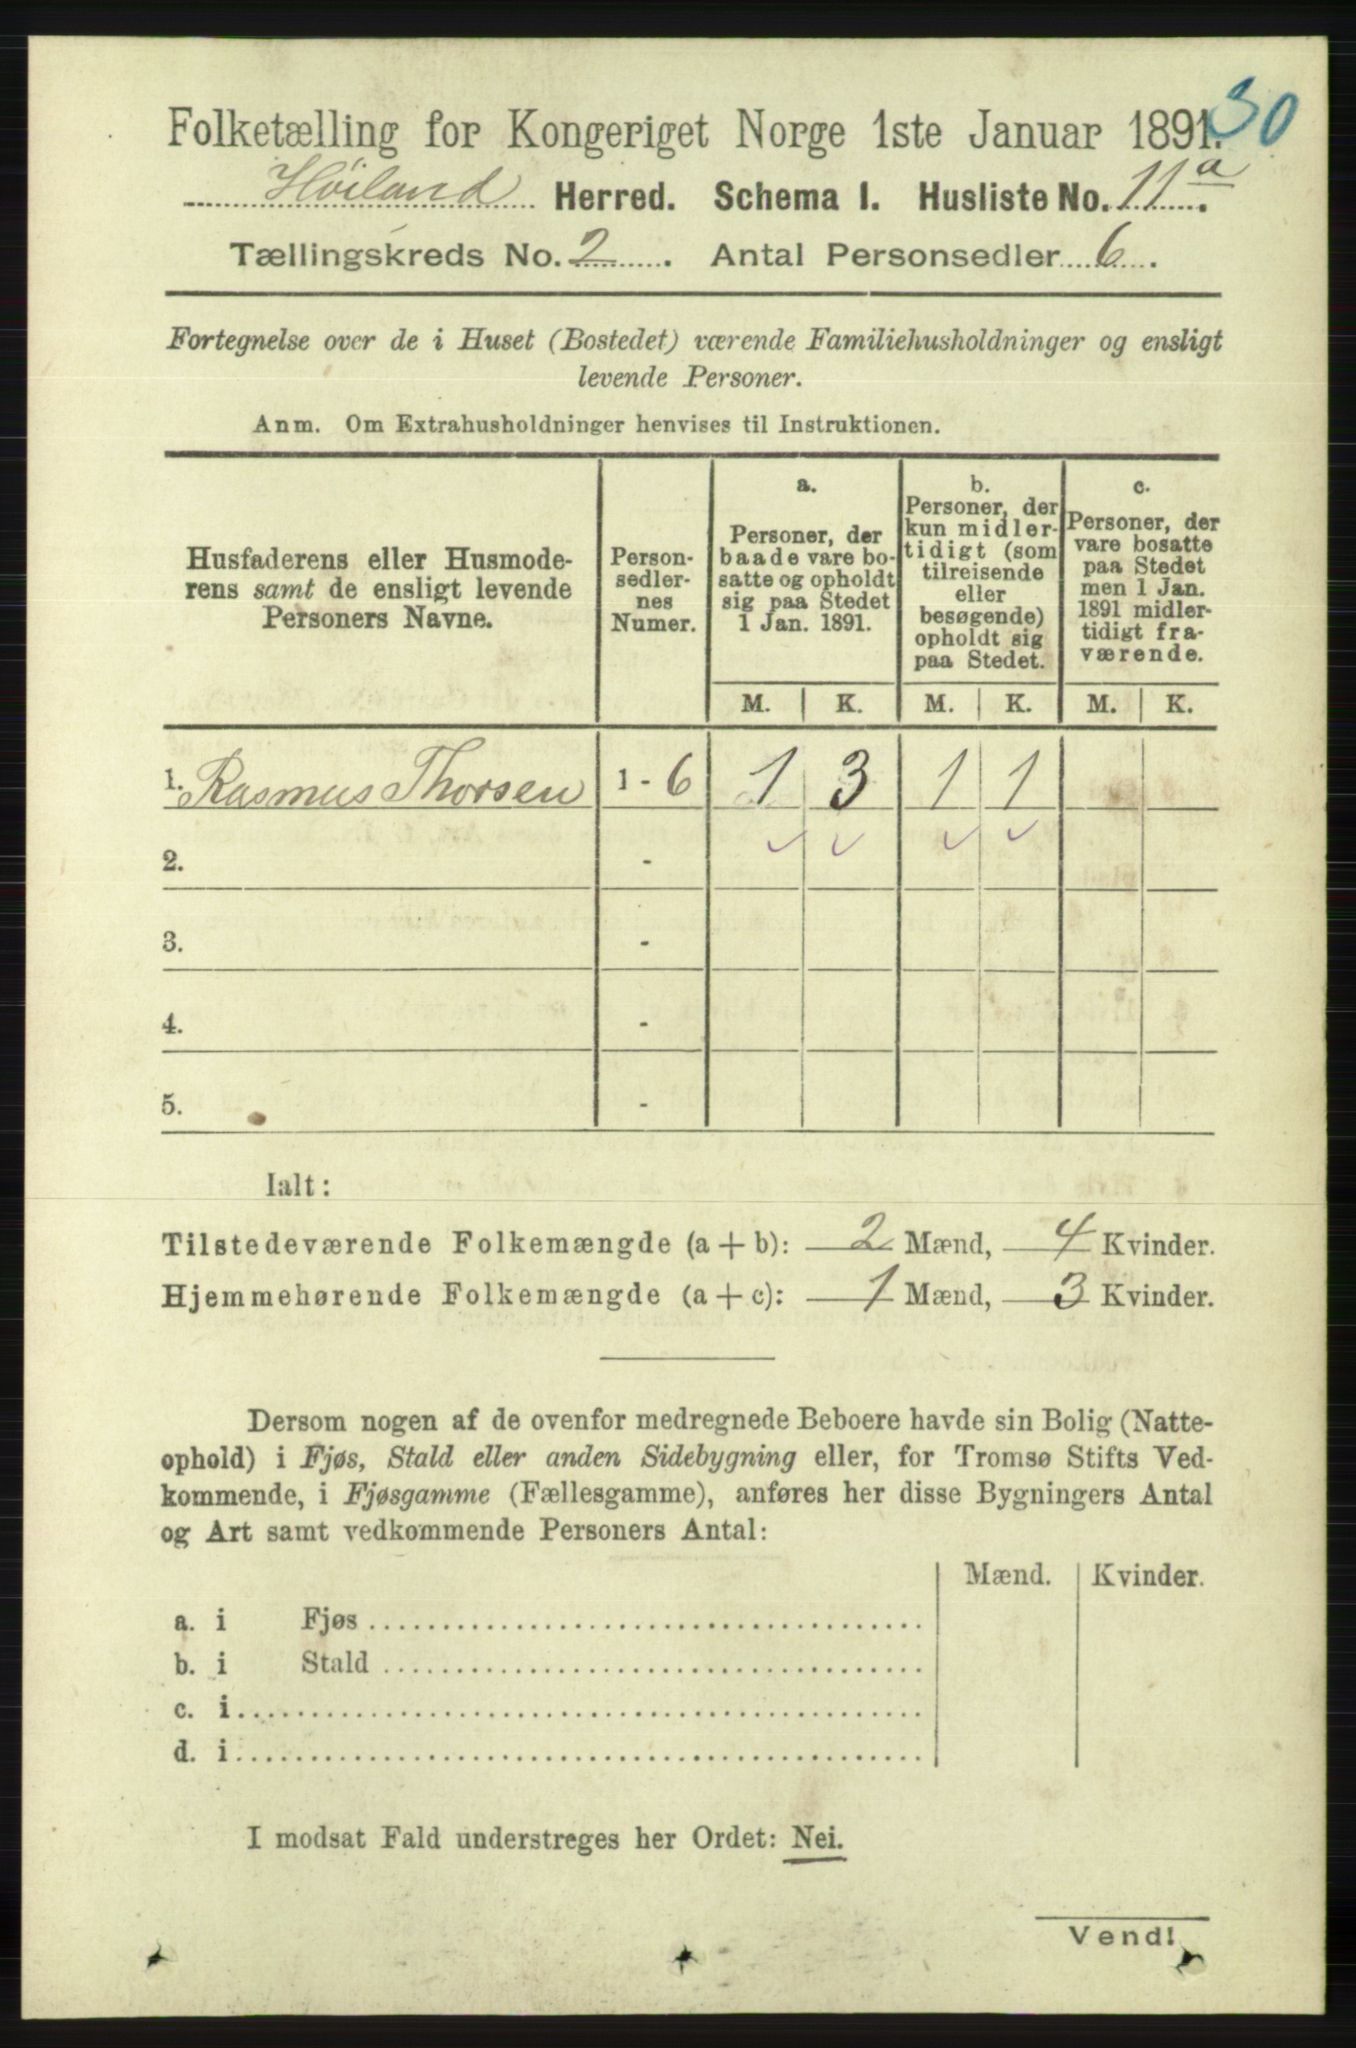 30
Folketælling for Kongeriget Norge 1ste Januar 1891.
Höiland Herred. Schema I. Husliste No. 11a.
Tællingskreds No. 2. Antal Personsedler 6.
Fortegnelse over de i Huset (Bostedet) værende Familiehusholdninger og ensligt
levende Personer.
Anm. Om Extrahusholdninger henvises til Instruktionen.
Husfaderens eller Husmode-
rens samt de ensligt levende
Personers Navne.
Person-
sedler-
nes
Numer.
a.
Personer, der
baade vare bo-
satte og opholdt
sig paa Stedet
1 Jan. 1891.
b.
Personer, der
kun midler-
tidigt (som
tilreisende
eller
besøgende)
opholdt sig
paa Stedet.
c.
Personer, der
vare bosatte
paa Stedet
men 1 Jan.
1891 midler-
tidigt fra-
værende.
M. K. M. K. M. K.
1. Rasmus Thorsen 1 - 6 1 3 1 1
2. -
3. -
4. -
5. -
Ialt:
Tilstedeværende Folkemængde (a + b): 2 Mænd, 4 Kvinder.
Hjemmehørende Folkemængde (a + c): 1 Mænd, 3 Kvinder.
Dersom nogen af de ovenfor medregnede Beboere havde sin Bolig (Natte-
ophold) i Fjøs, Stald eller anden Sidebygning eller, for Tromsø Stifts Ved-
kommende, i Fjøsgamme (Fællesgamme), anføres her disse Bygningers Antal
og Art samt vedkommende Personers Antal:
Mænd. Kvinder.
a. i Fjøs
b. i Stald
c. i
d. i
I modsat Fald understreges her Ordet: Nei.
Vend!